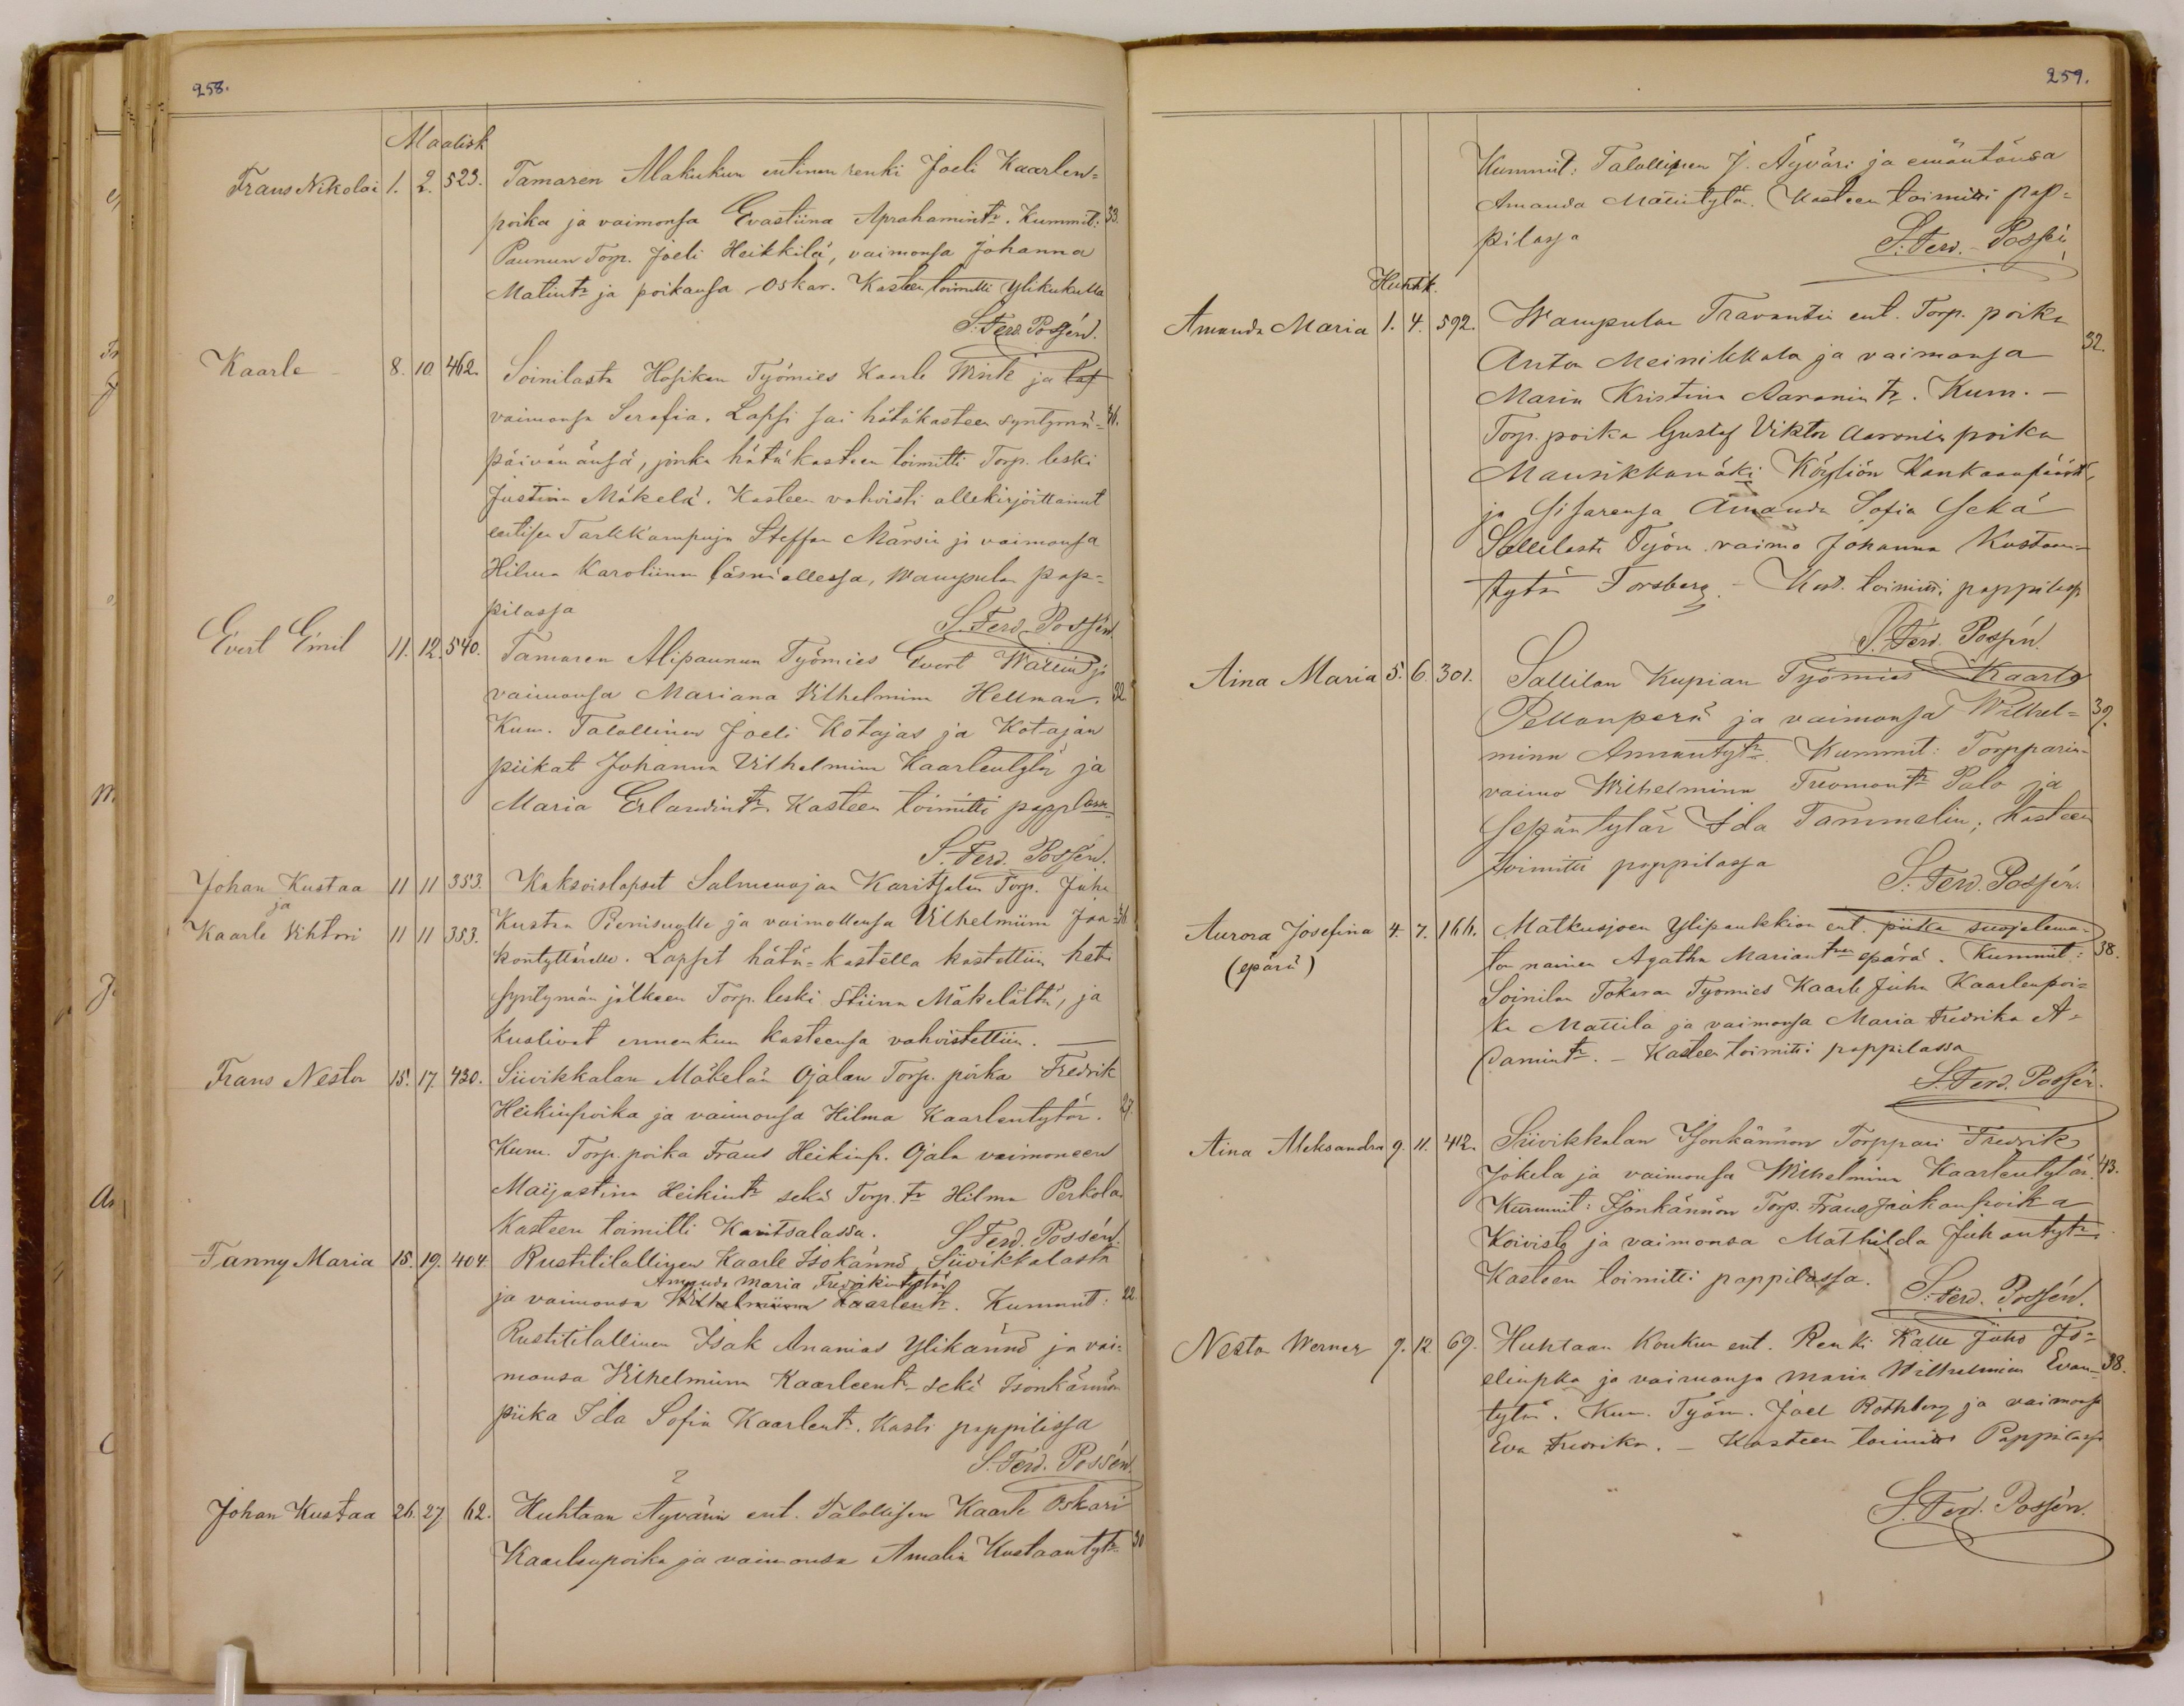 258.
Maalisk
Frans Nikolai 1. 2. 523. Tamaren Alakukun entinen renki Joeli Kaarlen=
poika ja vaimonsa Evastiina Aprahamintr. Kummit: 33.
Paunun Torp. Joeli Heikkilä, vaimonsa Johanna
Matintr ja poikansa Oskar. Kasteen toimitti Ylikukulla
S. Ferd. Possén.
Kaarle 8. 10. 462. Soinilasta Hosikan Työmies Kaarle Wink ja
vaimonsa Serafia. Lapsi sai hätäkasteen syntymä=
päivänänsä, jonka hätäkasteen toimitti Torp. leski
Justiina Mäkelä. Kasteen vahvisti allekirjoittanut
entisen Tarkkampujan Steffan Marsin ja vaimonsa
Hilma Karoliinan läsnäollessa, Wampulan pap=
pilassa
S. Ferd. Possén.
Evert Emil 11. 12. 540. Tamaren Alipaunun Työmies Evert Wallin ja
vaimonsa Mariana Vilhelmina Hellman. 32
Kum. Talollinen Joeli Kotajas ja Kotajan
piikat Johanna Vilhelmina Kaarlentytär ja
Maria Erlandintr. Kasteen toimitti
S. Ferd. Possén.
Johan Kustaa 11 11 353. Kaksoislapset Salmenojan Karitsalan Torp. Juha
ja
Kaarle Viktori 11 11 353. Kustaa Pienisuolle ja vaimollensa Vilhelmiina Jaa=
kontyttärelle. Lapset hätä=kasteella kastettiin heti
syntymän jälkeen Torp. leski Stiina Mäkelältä, ja
kuolivat ennenkun kasteensa vahvistettiin.
Frans Nestor 15. 17. 430. Siivikkalan Mäkelän Ojalan Torp. poika Fredrik
Heikinpoika ja vaimonsa Hilma Kaarlentytär. 27.
Kum. Torp. poika Frans Heikinp. Ojala vaimoneen
Maijastina Heikintr sekä Torp. tr Hilma Perkola.
Kasteen toimitti Karitsalassa. S. Ferd. Possén.
Fanny Maria 15. 19. 404. Rustitilallinen Kaarle Isokännö Siivikkalasta
Amanda Maria Fredrikintytär
ja vaimonsa Vilhelmiina Kaarlentr. Kummit: 22.
Rustitilallinen Isak Ananias Ylikännö ja vai=
monsa Vilhelmiina Kaarleentr sekä Isonkännön
piika Ida Sofia Kaarlentr. Kasti pappilassa
S. Ferd. Possén.
Johan Kustaa 26. 27 62. Huhtaan Äyvärin ent. Talollisen Kaarle Oskari
Kaarlenpoika ja vaimonsa Amalia Kustaantytr 30
259.
Kummit: Talollinen J. Äyväri ja emäntänsä
Amanda Matintytär. Kasteen toimitti pap=
pilassa S. Ferd. Possén
Huhtik.
Amanda Maria 1. 4. 592. Wampulan Travantin ent. Torp. poika
Anton Meinikkala ja vaimonsa 32.
Maria Kristina Aaronintr. Kum.
Torp. poika Gustaf Viktor Aaronin poika
Mansikkamäki Köyliön Kankaanpäästä,
ja sisarensa Amanda Sofia sekä
Sallilasta Työm. vaimo Johanna Kustaan=
tytär Forsberg. Kast. toimitti pappilassa
S. Ferd. Possén.
Aina Maria 5. 6. 301. Sallilan Kupian Työmies Kaarlo
Pellonperä ja vaimonsa Wilhel= 39.
mina Annantytr. Kummit: Torpparin
vaimo Wilhelmina Tuomontr Palo ja
Sepäntytär Ida Tammelin; Kasteen
toimitti pappilassa S. Ferd. Possén.
Aurora Josefina 4. 7. 166. Matkusjoen Ylipaukkion ent. piika suojelema=
(epärä) ton nainen Agatha Mariantren epärä. Kummit: 38.
Soinilan Tokaran Työmies Kaarle Juha Kaarlenpoi=
ka Mattila ja vaimonsa Maria Fredrika A=
damintr. – Kasteen toimitti pappilassa
S. Ferd. Possén.
Aina Aleksandra 9. 11. 412. Siivikkalan Isonkännön Torppari Fredrik
Jokela ja vaimonsa Wilhelmina Kaarlentytär. 43.
Kummit: Isonkännön Torp. Frans Juhanpoika
Koivisto ja vaimonsa Mathilda Juhantytr.
Kasteen toimitti pappilassa. S. Ferd. Possén.
Nestor Werner 9. 12. 69. Huhtaan Koukun ent. Renki Kalle Juho Jo=
elinpka ja vaimonsa Maria Wilhelmina Evan= 38.
tytär. Kum. Työm. Joel Rothberg ja vaimonsa
Eva Fredrika. – Kasteen toimitti Pappilassa
S. Ferd. Possén.